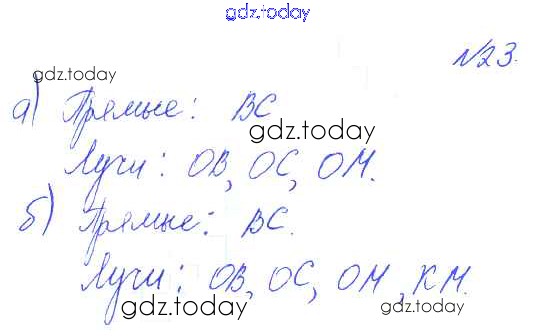 gdz.today
№23.
gdz.today
а) Прямые: ВС
gdz.today
Лучи: ОВ, ОС, ОМ.
б) Прямые: ВС.
Лучи: ОВ, ОС, ОМ, КМ.
gdz.today
gdz.today